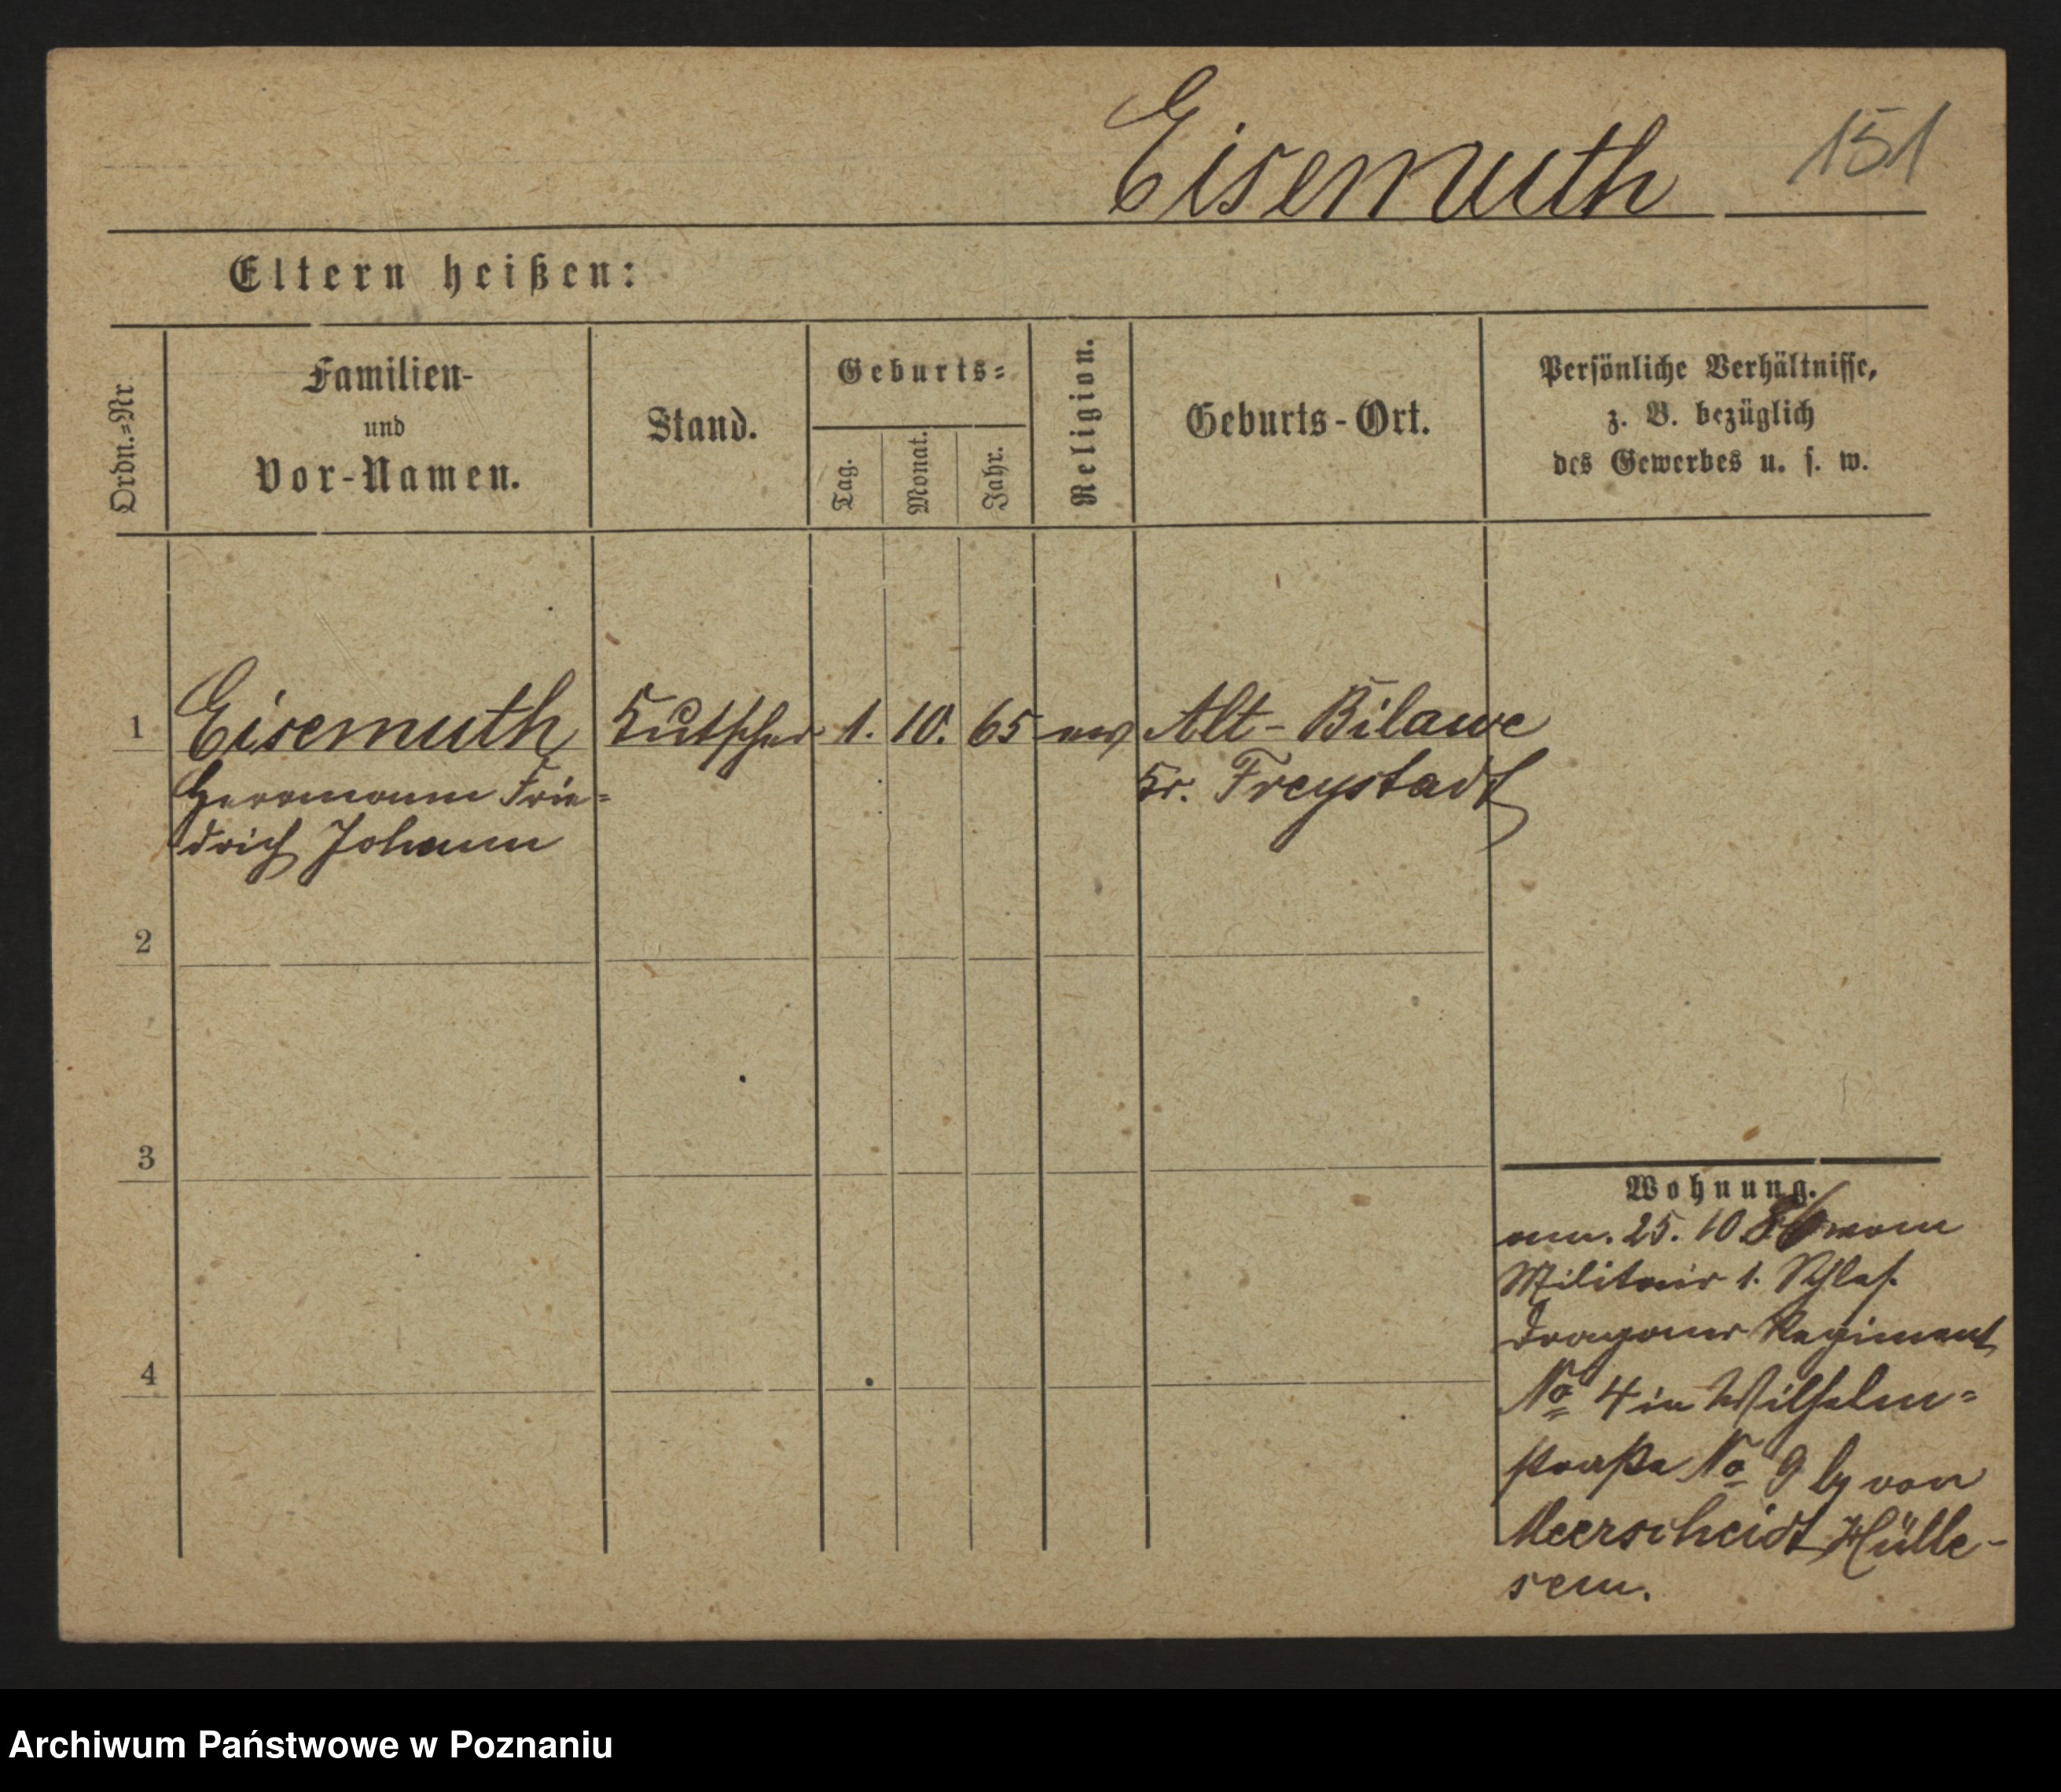 Eisemuth 151
Eltern heißen:
Ordn.=Nr.
Familien-
und
Vor-Namen.
Stand.
Geburts=
Tag.
Monat.
Jahr.
Religion.
Geburts-Ort.
Persönliche Verhältnisse,
z. B. bezüglich
des Gewerbes u. s. w.
1 Eisemuth Kutscher 1. 10. 65 ev Alt-Bilawe
Herrmann Frie= Kr. Freystadt
drich Johann
2
3
4
Wohnung.
25. 10. 86 vom
Militair 1. Schles.
Dragoner Regiment
No 4 in Wilhelm=
straße No 9 by von
Meerscheidt Hülle-
sem.
Archiwum Państwowe w Poznaniu